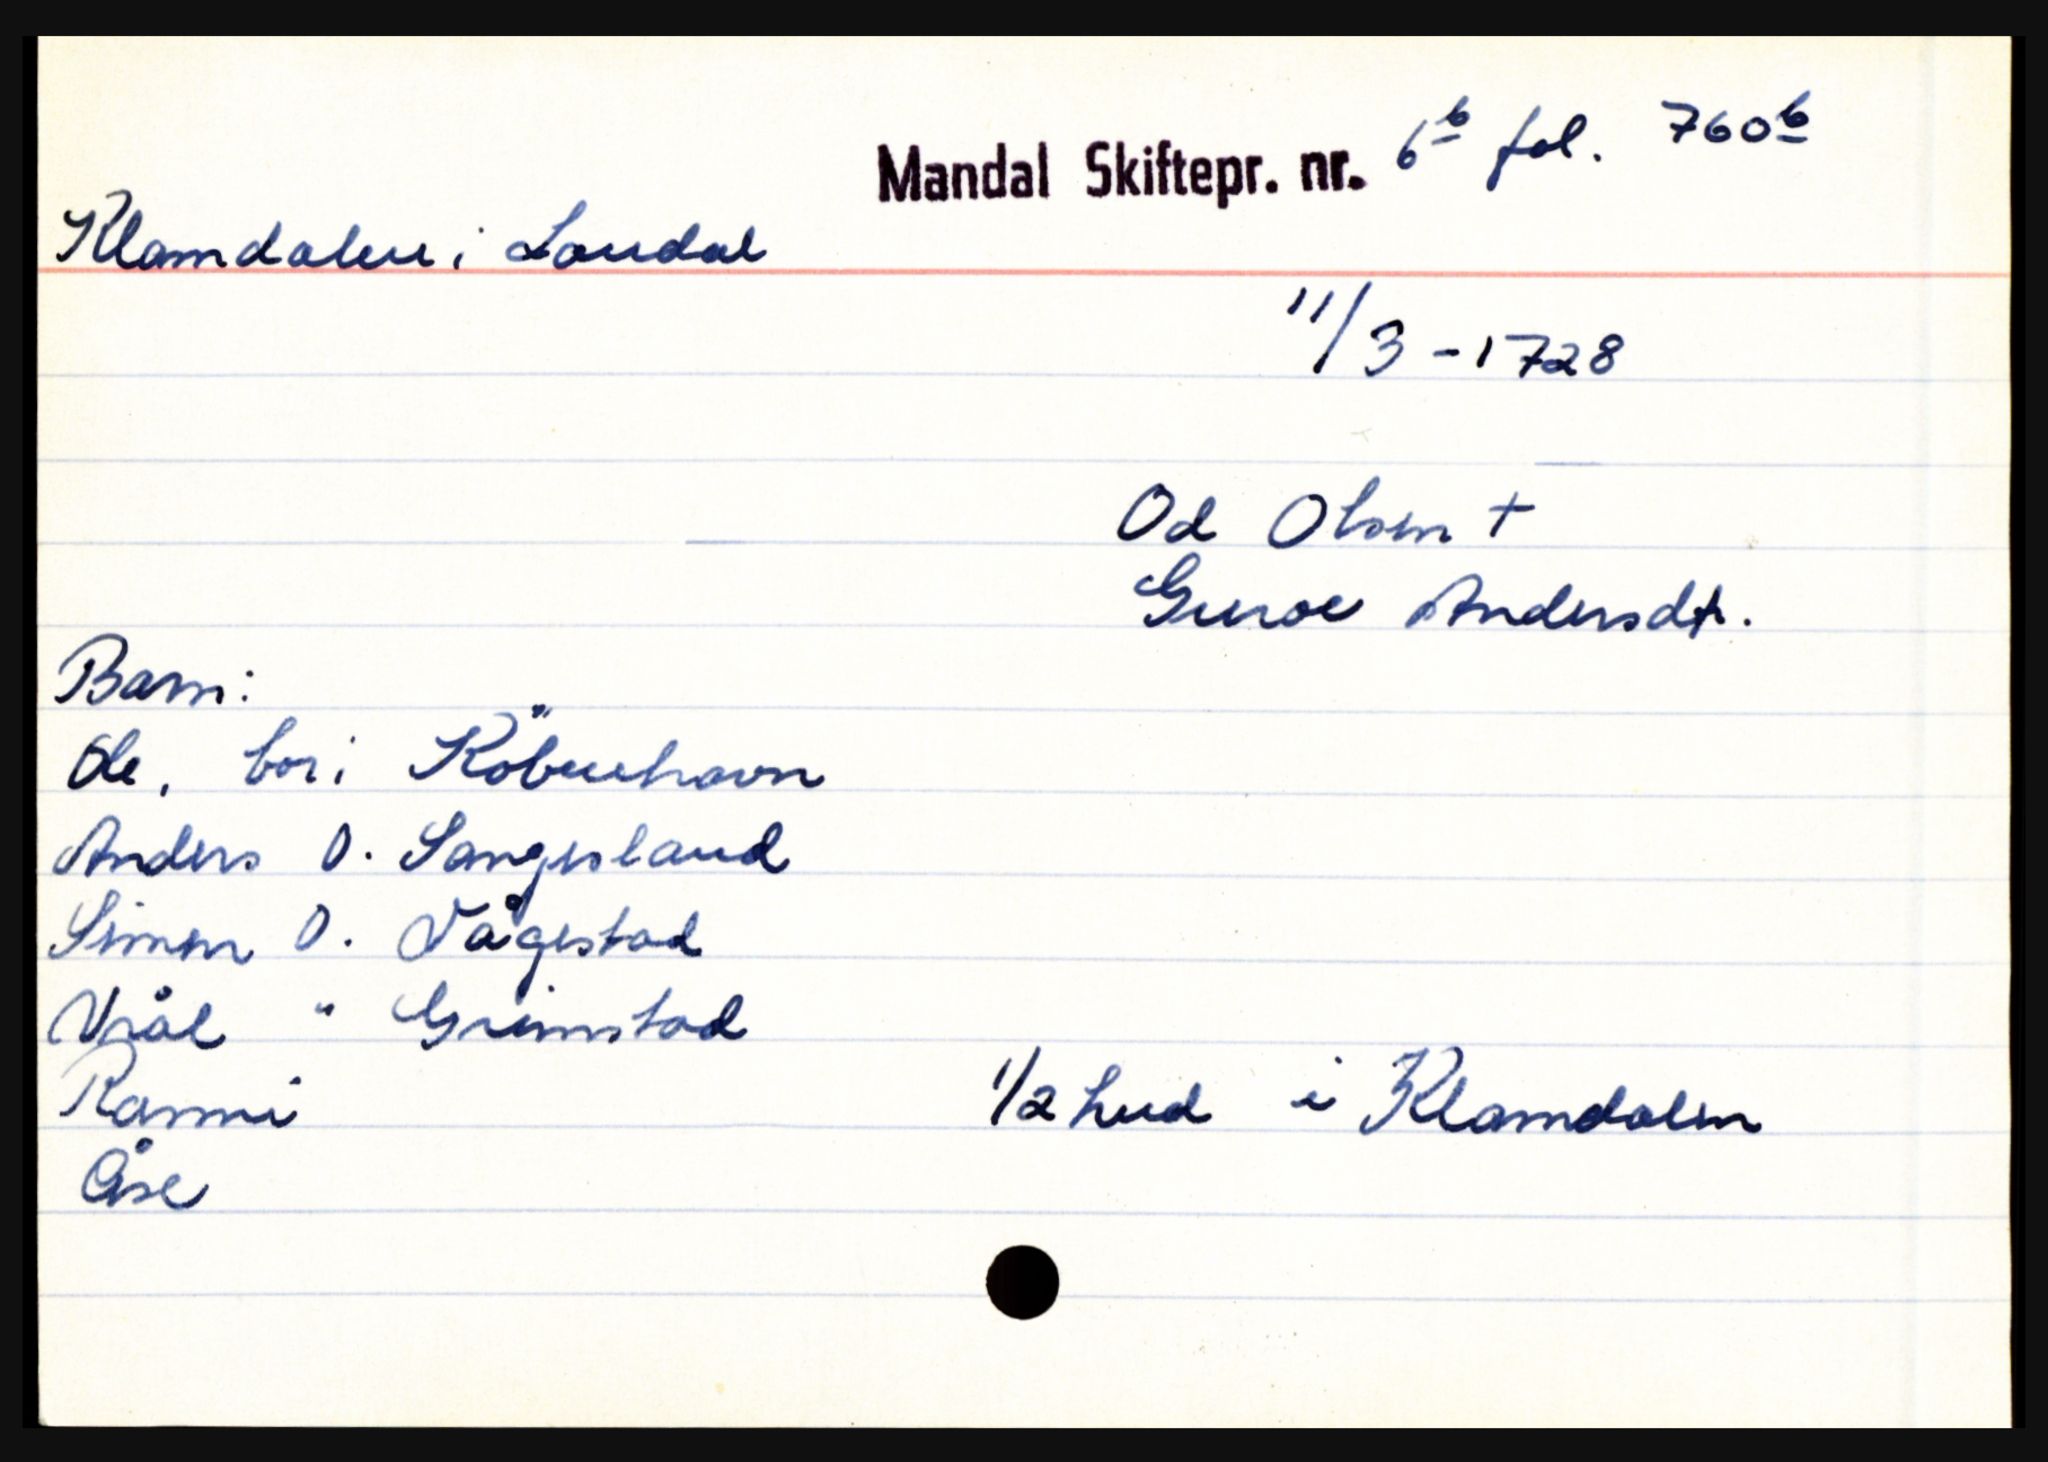 Mandal Skiftepr. nr. 6b fol. 760b
Klamdalen i Laudal
11/3-1728
Od Olsen +
Guroe Andersdt.
Barn:
Ole, bor i Köbenhavn
Anders O. Sangesland
Simen O. Vågestad
Vrål " Grimstad
Ranni
1/2 hud i Klamdalen
Åse